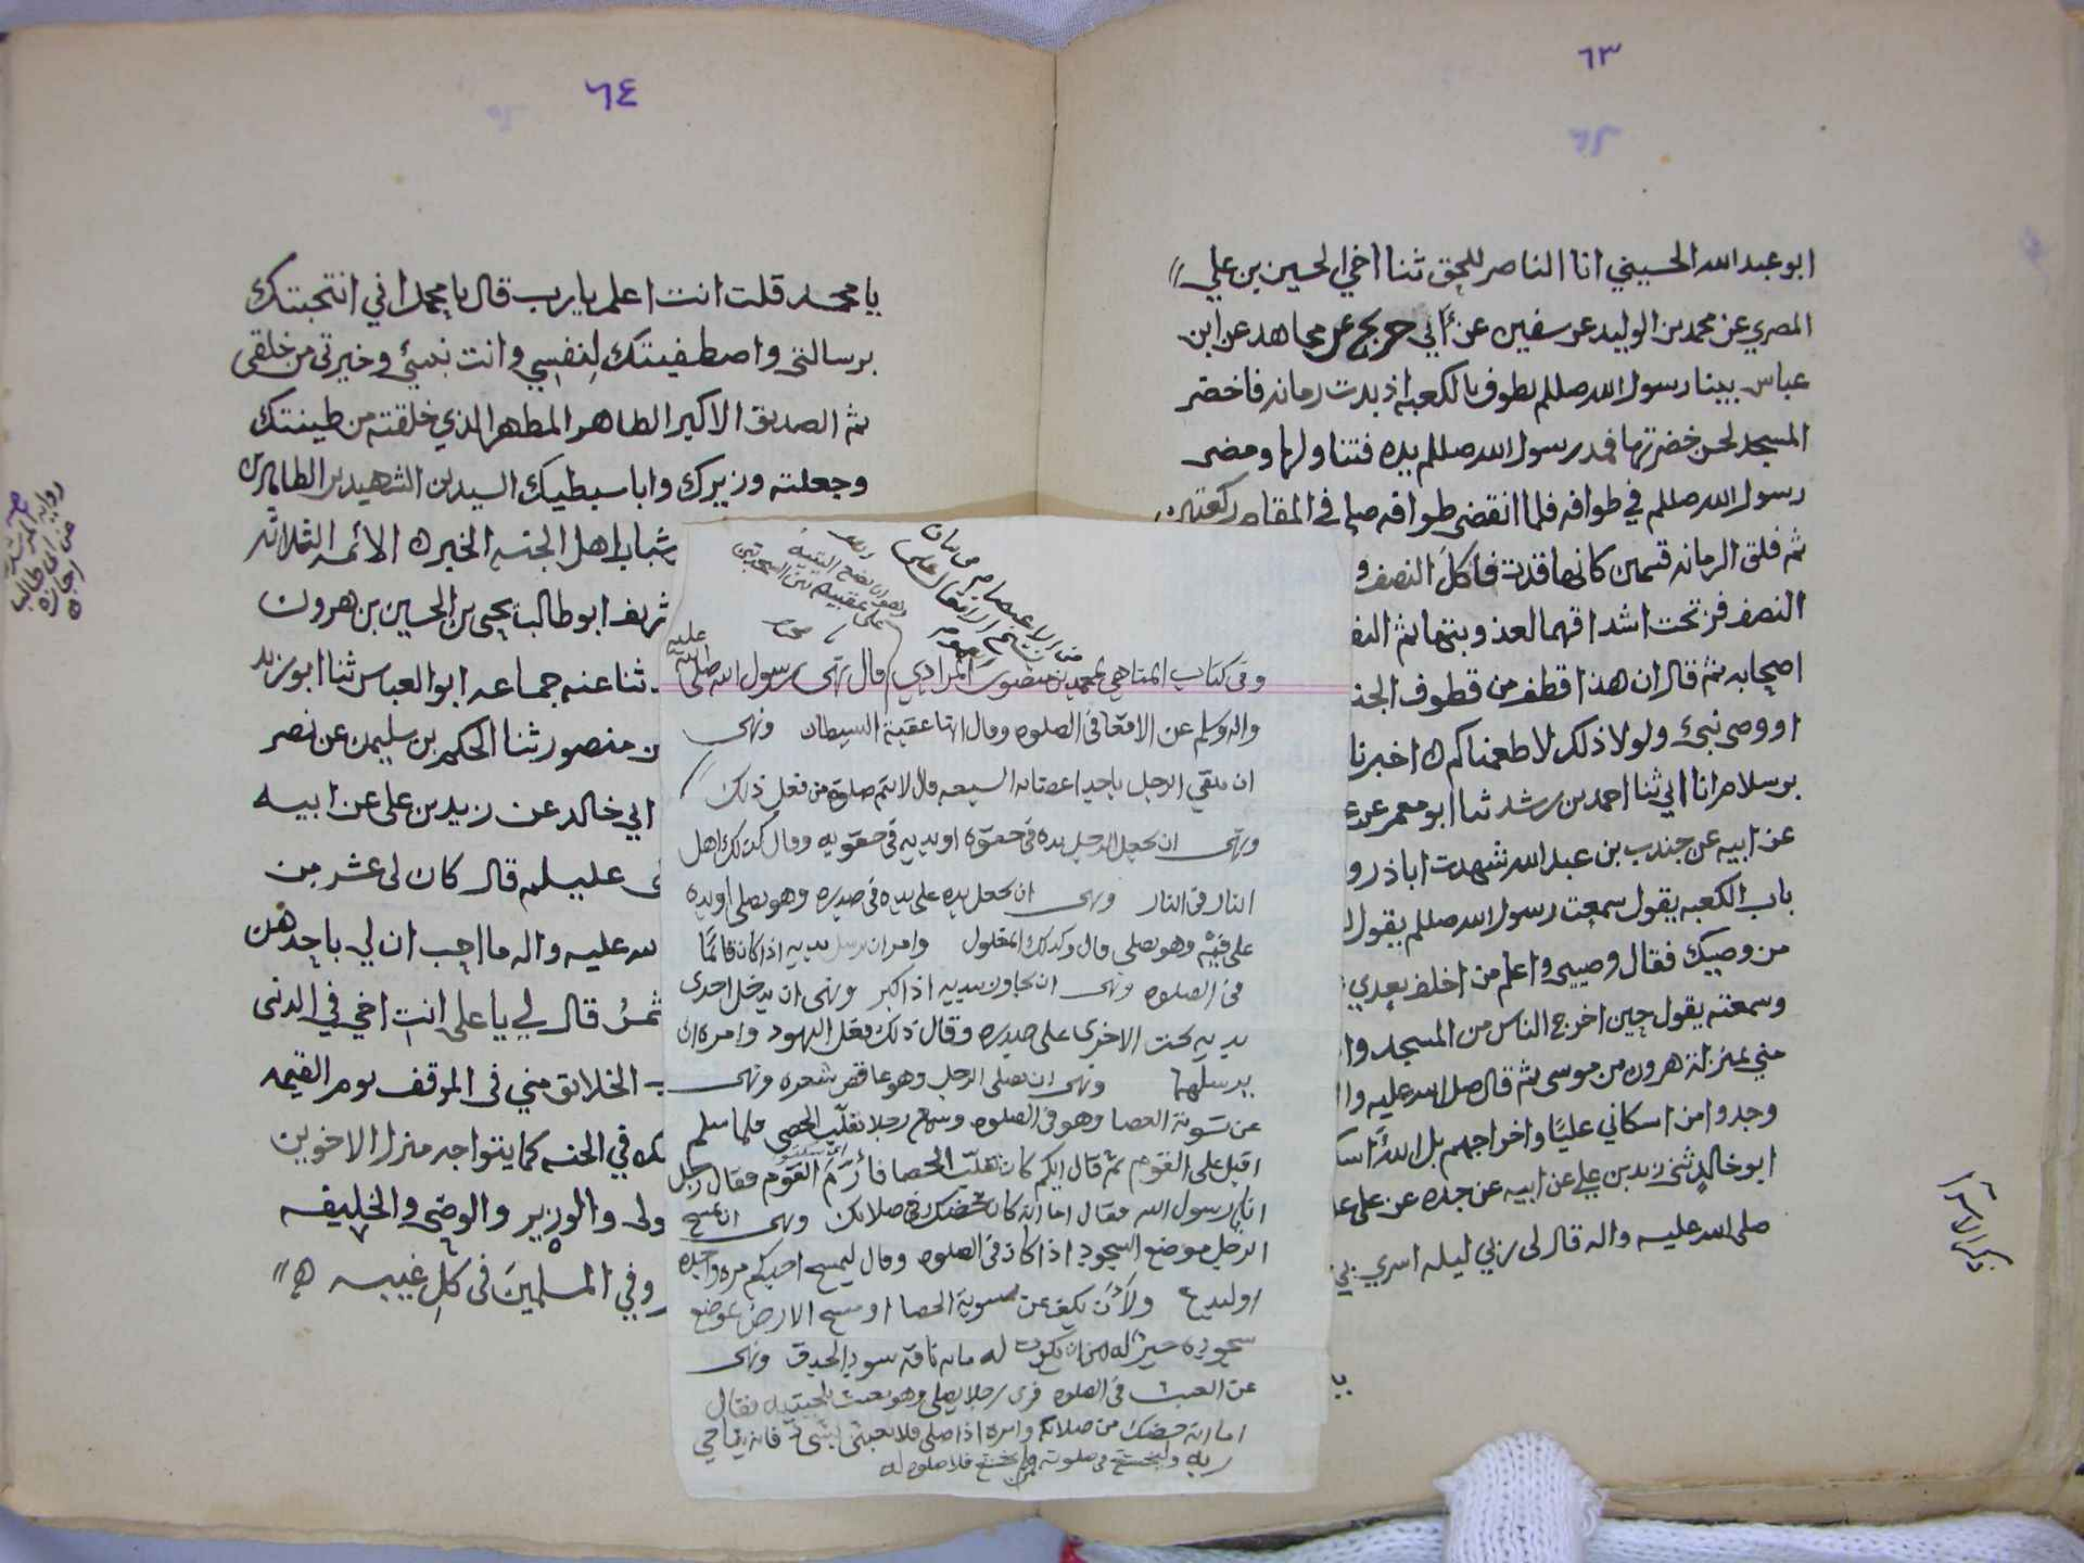 ٦٣
ابو عبد الله الحسيني انا الناصر للحق ثنا اخي الحسين بن علي
المصري عن محمد بن الوليد عن سفين عن أبي جريج عن مجاهد عن ابن
عباس بينا رسول الله صللم يطوف بالكعبه اذ بدت رمانه فاخضر
المسجد لحسن خضرتها فمد رسول الله صللم يده فتناولها ومضى
رسول الله صللم في طوافه فلما انقضى طوافه صلى في المقام ركعتين
ثم فلق الرمانه قسمين كانها قدت فاكل النصف و
النصف فزتحت اشداقهما لعذوبتها ثم
اصحابه ثم قال ان هذا قطف من قطوف
او وصي نبيء ولولا ذلك لاطعمناكم ه اخبرنا
بو سلام انا ابي ثنا احمد بن رشد ثنا ابو معمر عن
عن ابيه عن جندب بن عبد الله شهدت اباذر و
باب الكعبه يقول سمعت رسول الله صللم يقول
من وصيك فقال وصيي واعلم من اخلف بعدي
وسمعته يقول حين اخرج الناس من المسجد وا
مني بمنزلة هرون من موسى ثم قال صلى الله عليه وا
وجدوا من اسكاني عليًا واخراجهم بل الله
ابو خالد ثني زيد بن علي عن ابيه عن جده عن علي
صلى الله عليه واله قال لي ربي ليله اسري بي
ذكر الاسرا
٦٤
يا محمد قلت انت اعلم يا رب قال يا محمد اني انتجبتك
برسالتي واصطفيتك لنفسي وانت نبيئ وخيرتي من خلقي
ثم الصديق الاكبر الطاهر المطهر الذي خلقته من طينتك
وجعلته وزيرك وابا سبطيك السيدين الشهيدين الطاهرين
شباب اهل الجنه الخيره الائمه الثلاثه
ابو طالب يحيى بن الحسين بن هرون
ثنا عنه جماعه ابو العباس ثنا ابو زيد
ن منصور ثنا الحكم بن سليمن عن نصر
ابي خالد عن زيد بن علي عن ابيه
عليسلم قال كان لي عشر من
لله عليه واله ما احب ان لي باحدهن
ثم قال لي يا علي انت اخي في الدنى
الخلائق مني في الموقف يوم القيمه
ك في الجنه كما يتواجه منزل الاخوين
ولي والوزير والوصي والخليفه
وفي المسلمين في كل غيبه ه
من الاعتصام
وفي كتاب المناهي لمحمد بن منصور المرادي قال نهى رسول الله صلى الله عليه
واله وسلم عن الاقعا في الصلوه وقال انها عقبة الشيطان ونهى
ونهى ان يجعل الرجل يده في حقوه او يديه في حقويه وقال كذلك اهل
النار في النار ونهى ان يجعل يده على يده في صدره وهو يصلي او يده
على فيه وهو يصلي قال وكذلك المغلول وامر ان يرسل يديه اذا كان قائمًا
في الصلوه ونهى ان يجاوز يديه اذا كبر ونهى ان يدخل احدى
يديه تحت الاخرى على صدره وقال ذلك فعل اليهود وامره ان
يرسلهما ونهى ان يصلي الرجل وهو عاقص شعره ونهى
عن تسوية الحصا وهو في الصلوه وسمع رجلا يقلب الحصى فلما سلم
اقبل على القوم ثم قال ايكم كان يقلب الحصا فأرَمّ القوم فقال رجل
انا يا رسول الله فقال اما انه كان حضك في صلاتك ونهى ان يمسح
الرجل موضع السجود اذا كان في الصلوه وقال ليمسح احدكم مره واحده
او ليدع ولأن يكف عن تسوية الحصا او مسح الارض موضع
سجوده خير له من ان يكون له مائة ناقة سود الحدق ونهى
عن العبث في الصلوه فرى رجلا يصلي وهو يعبث بلحيته فقال
اما انه حضك من صلاتك وامره اذا صلى فلا يعبثن بشي فانه يناجي
ربه وليخشع في صلوته فلا صلوه له